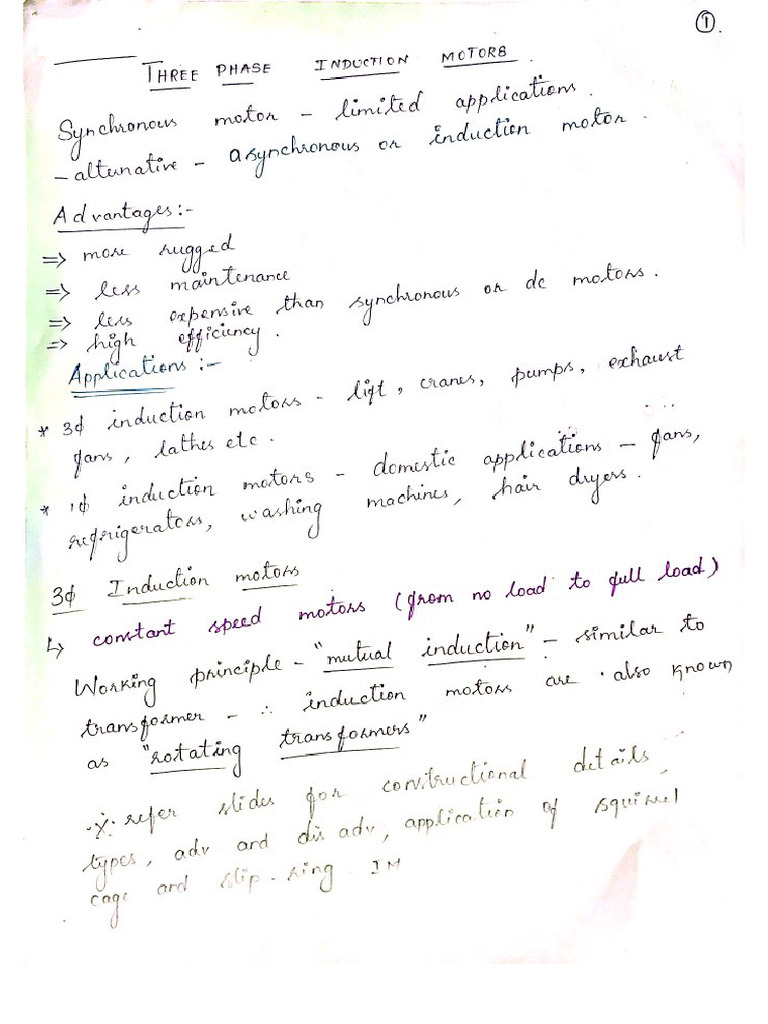 ①.
THREE PHASE INDUCTION MOTORS.
Synchronous motor - limited applications.
- altunative - asynchronous or induction motor.
Advantages:-
⇒ more rugged
⇒ less maintenance
⇒ less expensive than synchronous or dc motors.
⇒ high efficiency.
Applications:-
* 3ϕ induction motors - lift, cranes, pumps, exhaust
fans, lathes etc.
* 1ϕ induction motors - domestic applications - fans,
refrigerators, washing machines, hair dryers.
3ϕ Induction motors
↳ constant speed motors (from no load to full load)
Working principle - "mutual induction" - similar to
transformer - ∴ induction motors are also known
as "rotating transformers"
※ refer slides for constructional details
types, adv and dis adv, application of squirrel
cage and slip-ring IM